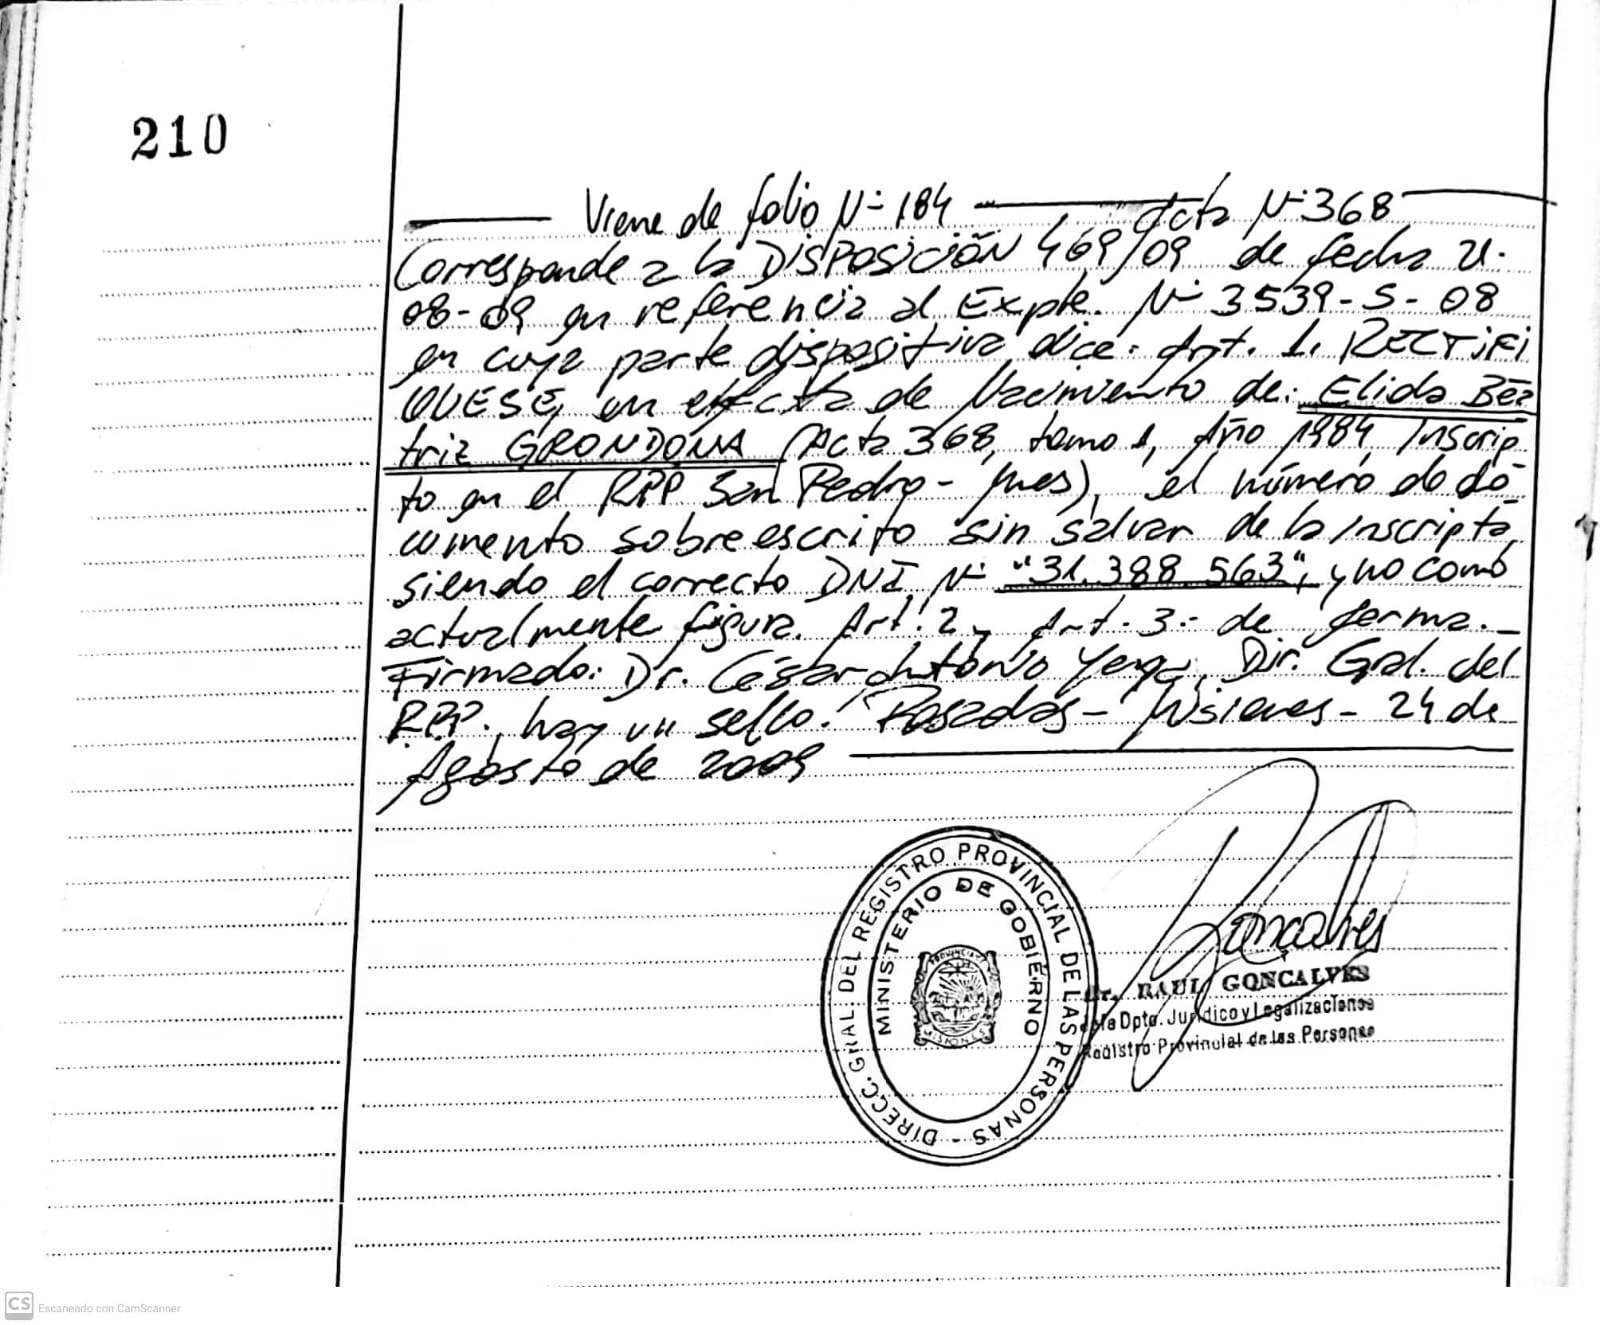 210
Viene de folio Nº 184 Acta Nº 368
Corresponde a la DISPOSICIÓN 469/09 de fecha 21-
08-09 en referencia al Expte. Nº 3539-S-08
en cuya parte dispositiva dice: Art. 1. RECTIFI
QUESE, en el acta de Nacimiento de: Elida Bea
triz GRONDONA (Acta 368, tomo 1, Año 1984 Inscrip
to en el RPP San Pedro - Mnes), el número de do
cumento sobreescrito sin salvar de la inscripta,
siendo el correcto DNI Nº "31.388.563", y no como
actualmente figura. Art. 2 y Art. 3.- de forma.-
Firmado: Dr. César Antonio, Dir. Gral. del
RPP. hay un sello. Posadas - Misiones - 24 de
Agosto de 2009
DIRECC. GRAL. DEL REGISTRO PROVINCIAL DE LAS PERSONAS -
MINISTERIO DE GOBIERNO
PROVINCIA
MISIONES
Goncalves
Dr. RAUL GONCALVES
Jefe Dpto. Jurídico y Legalizaciones
Registro Provincial de las Personas
CS Escaneado con CamScanner